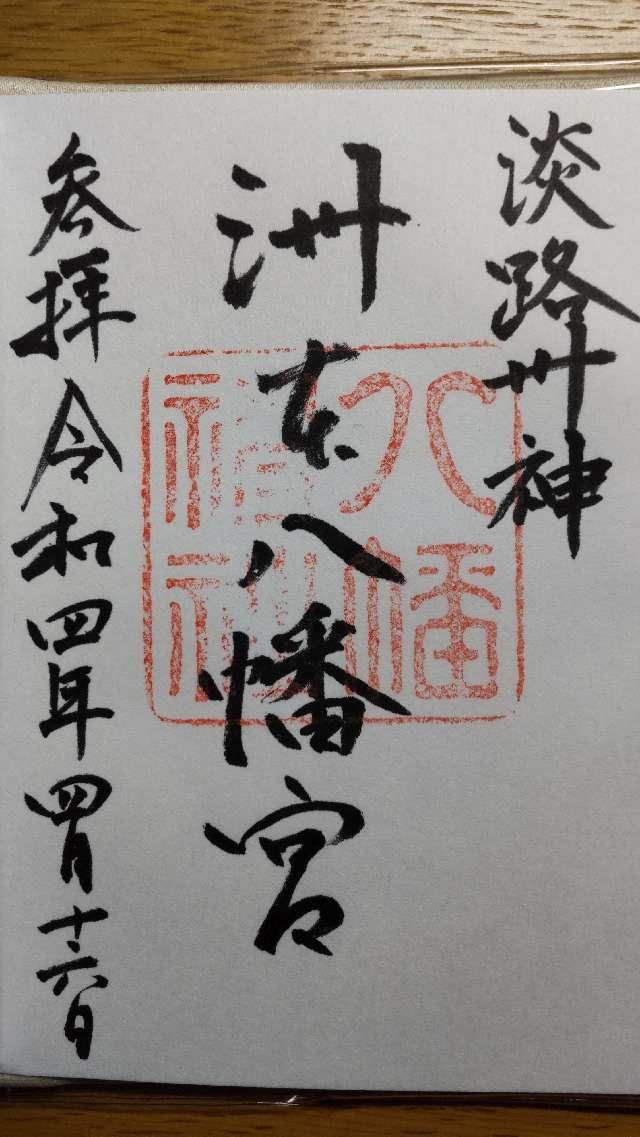 淡路州神
洲本八幡宮
八幡
参拝 令和四年四月十六日